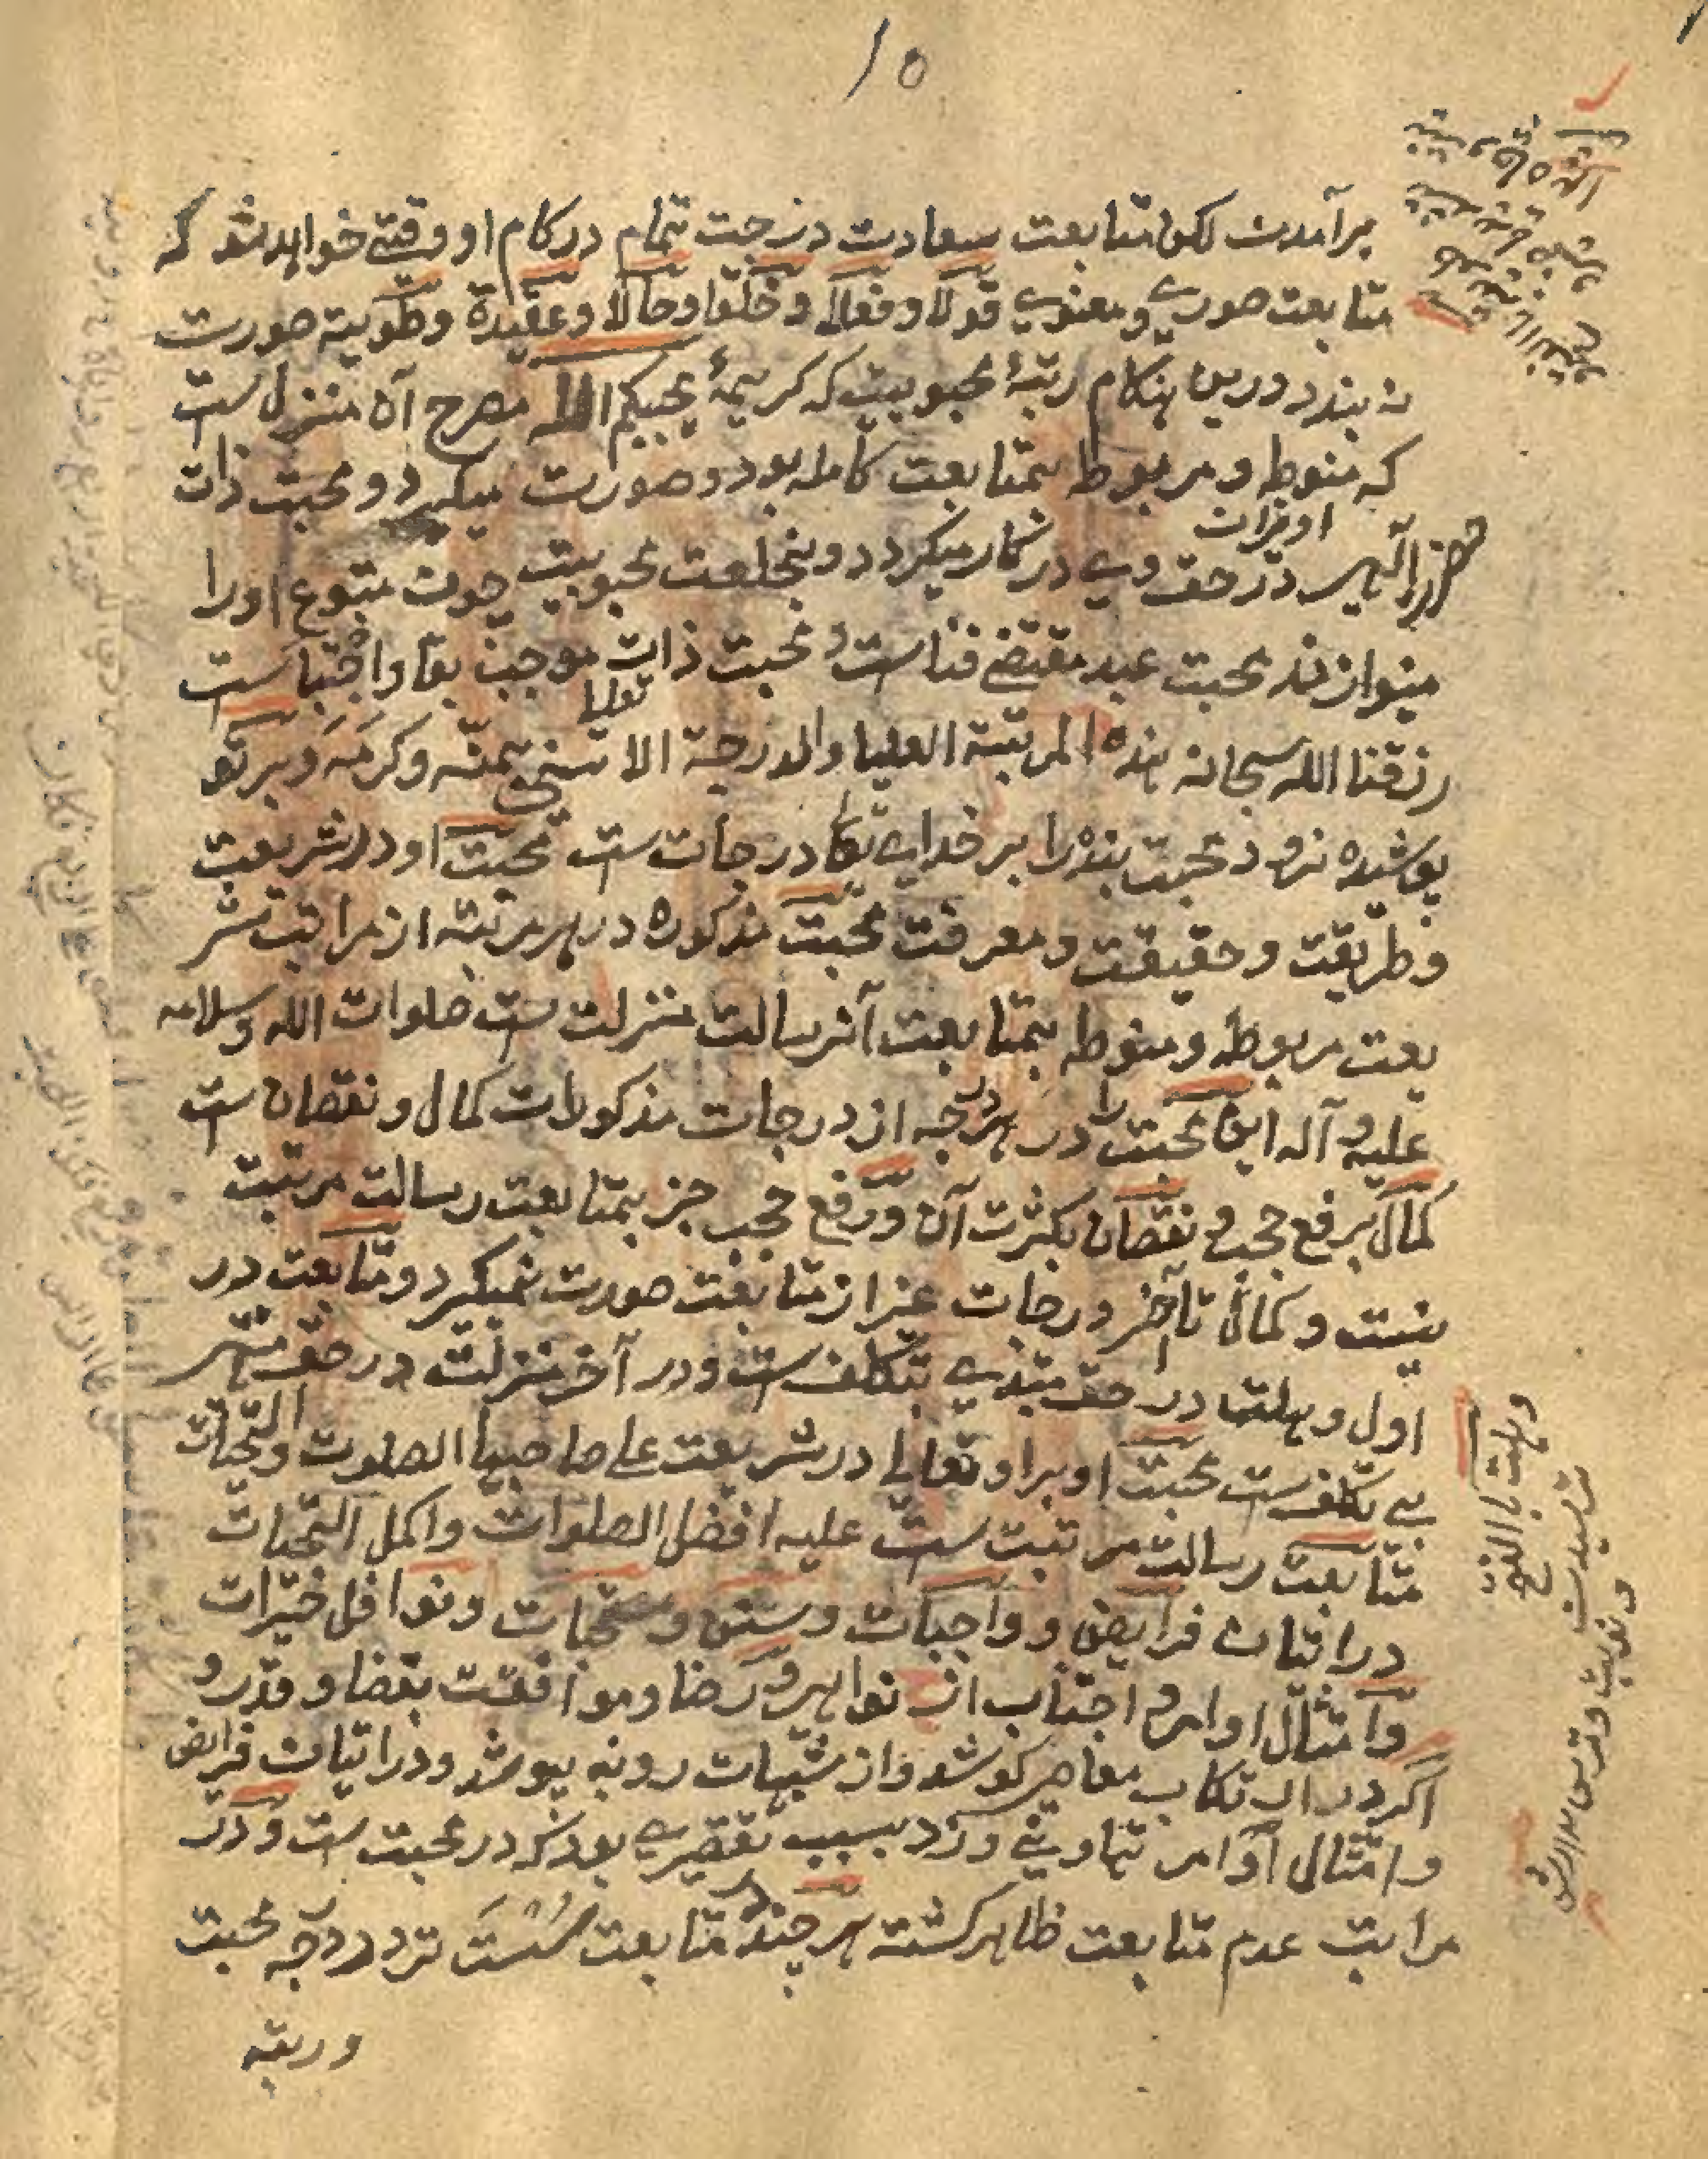 ۱۵
برآمدن لکن متابعت سعادت درجت تمام در کام او وقتے خواهد شد که
متابعت صورے و معنوے قولا و فعلا و خلقا و حالا و عقیدة و طویة صورت
نه بندد درین هنکام رتبۀ محبوبیت که کریمۀ یحببکم الله مصرح آن منزل است
که منوط و مربوط بمتابعت کامله بود و صورت میکیرد و محبت ذات
الهی در حق وے در شمار میکردد و بخلعت محبوبیت چون متبوع او را
مینوازند محبت عبد مقتضے فنا است و محبت ذات موجب بقا و اجتبا ست
تعالیا
رزقنا الله سبحانه هذه المرتبة العلیا والدرجة الاسنی بمنّه وکرمه و بر تو
پوشیده نرود محبت بنده را بر خداے تعالیا درجات ست محبت او در شریعت
و طریقت و حقیقت و معرفت محبت مذکوره در هر مرتبه از مراتب شر
یعت مربوط و منوط بمتابعت آن رسالت منزلت ست صلوات الله وسلامه
علیه و آله این محبت را در هر درجه از درجات مذکورات کمال و نقصان ست
کمال برفع حجب و نقصان بکثرت آن و رفع حجب جز بمتابعت رسالت مرتبت
نیست و کمال تا آخر درجات غیر از متابعت صورت نمیکیرد و متابعت در
اول وهلت در حق مبتدے بتکلف ست و در آخر منزلت در حق منتهی
بے تکلف ست محبت او بر او تعالیا در شریعت علی صاحبها الصلوت والتحیات
متابعت رسالت مرتبت ست علیه افضل الصلوات و اکمل التحیات
در اتیان فرایض و واجبات و سنن و مستحبات و نوافل خیرات
و امتثال اوامر و اجتناب از نواهی و رضا و موافقت بقضا و قدر و
اکر در ارتکاب معاصی کوشد و از شبهات رو نه پوشد و در اتیان فرایض
و امتثال اوامر تهاونے ورزد بسبب تقصیرے بود که در محبت ست و در
مراتب عدم متابعت ظاهر کشته هر چند متابعت سست تر در درجه محبت
وربقه
وهلت بالفتح
ترسیدن